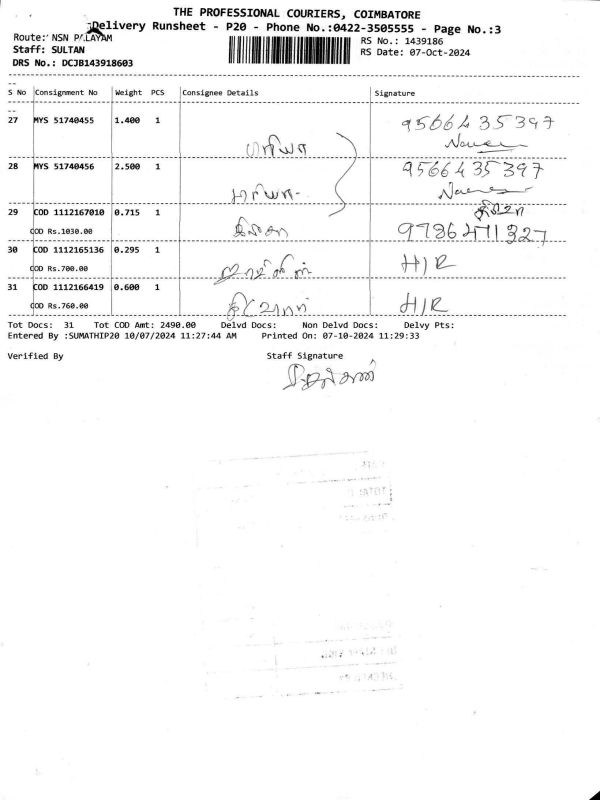 THE PROFESSIONAL COURIERS, COIMBATORE
Delivery Runsheet - P20 - Phone No.:0422-3505555 - Page No.:3
Route: NSN PALAYAM
RS No.: 1439186
Staff: SULTAN
RS Date: 07-Oct-2024
DRS No.: DCJB143918603
S No Consignment No Weight PCS Consignee Details Signature
27 MYS 51740455 1.400 1 9566435397
பிரியா
28 MYS 51740456 2.500 1 9566435397
29 COD 1112167010 0.715 1
COD Rs.1030.00 9786471327
30 COD 1112165136 0.295 1 H/R
COD Rs.700.00
31 COD 1112166419 0.600 1 H/R
COD Rs.760.00
Tot Docs: 31 Tot COD Amt: 2490.00 Delvd Docs: Non Delvd Docs: Delvy Pts:
Entered By :SUMATHIP20 10/07/2024 11:27:44 AM Printed On: 07-10-2024 11:29:33
Verified By Staff Signature